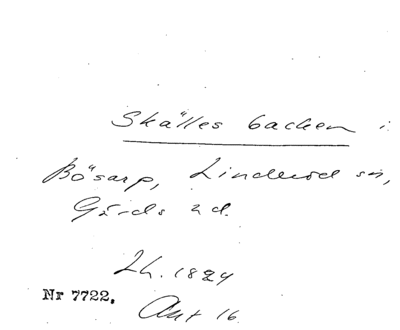 Skälles backen i
Bösarp, Linderöd sn,
Gärds hd.
Lh. 1824
Nr 7722.
Akt 16